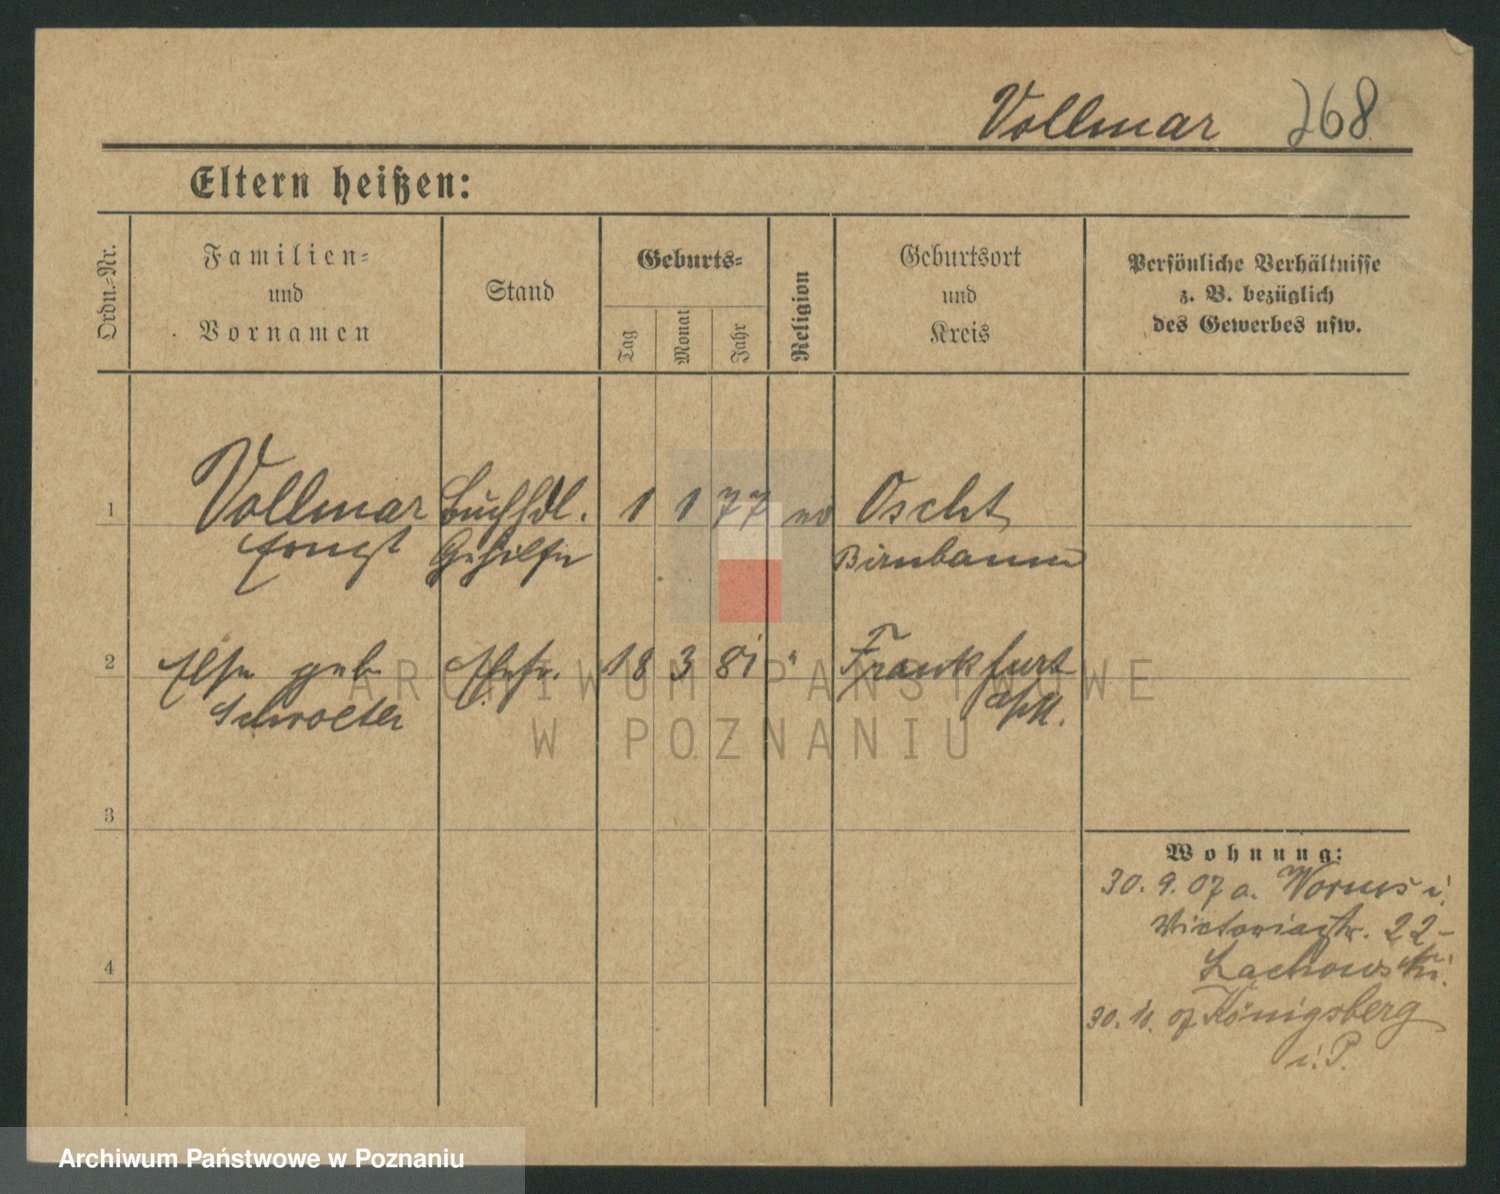 Vollmar 268
Eltern heißen:
Ordn.-Nr.
Familien-
und
Vornamen
Stand
Geburts-
Tag
Monat
Jahr
Religion
Geburtsort
und
Kreis
Persönliche Verhältnisse
z. B. bezüglich
des Gewerbes usw.
1 Vollmar Buchhdl. 1 1 77 ev Oscht
Ernst Gehilfe Birnbaum
2 Else geb Ehefr. 18 3 81 " Frankfurt
Schroeter a/M.
3
4
Wohnung:
30. 9. 07 a. Worms i.
Victoriastr. 22-
Lachowski.
30. 10. 07 Königsberg
i. P.
ARCHIWUM PAŃSTWOWE
W POZNANIU
Archiwum Państwowe w Poznaniu